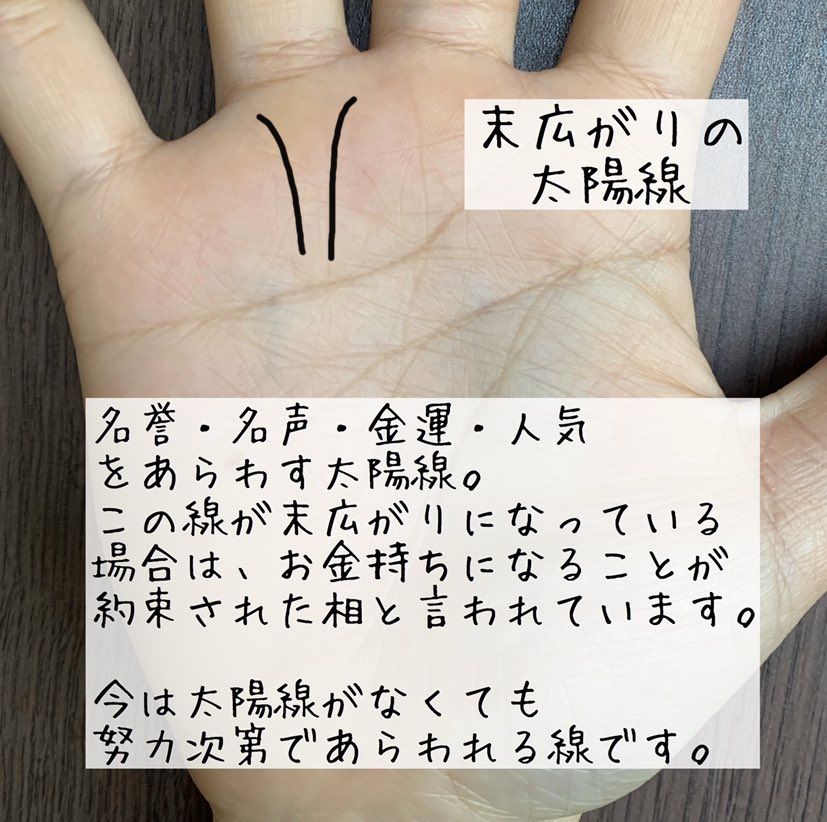 末広がりの
太陽線
名誉・名声・金運・人気
をあらわす太陽線。
この線が末広がりになっている
場合は、お金持ちになることが
約束された相と言われています。
今は太陽線がなくても
努力次第であらわれる線です。